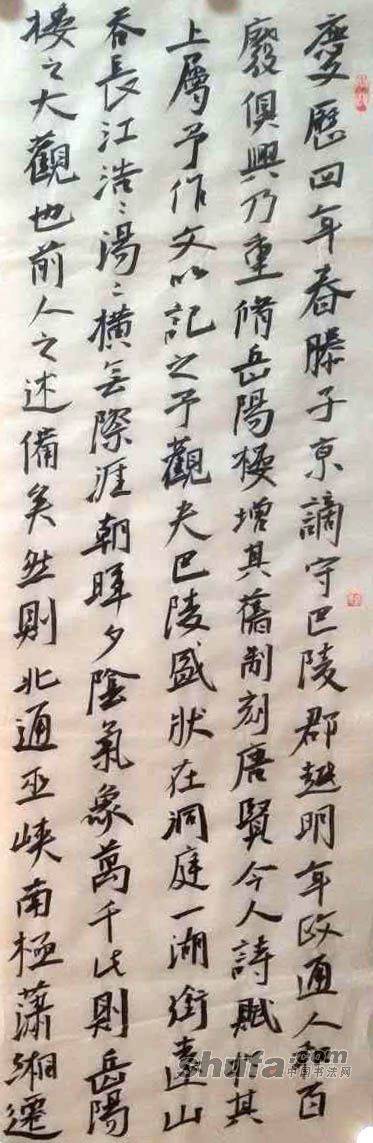 慶歷四年春滕子京謫守巴陵郡越明年政通人和百
廢俱興乃重脩岳陽樓增其舊制刻唐賢今人詩賦於其
上屬予作文以記之予觀夫巴陵盛狀在洞庭一湖銜遠山
吞長江浩〻湯〻橫無際涯朝暉夕陰氣象萬千此則岳陽
樓之大觀也前人之述備矣然則北通巫峽南極瀟湘遷
shufa.com
中国书法网